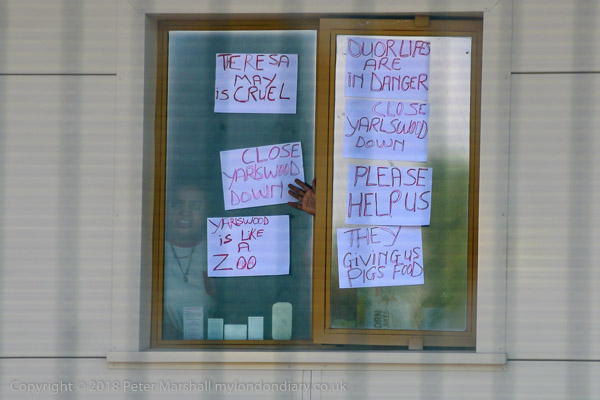 TERESA
MAY
is CRUEL
CLOSE
YARLSWOOD
DOWN
YARLSWOOD
is LIKE
A
ZOO
OUOR LIFES
ARE
IN DANGER
CLOSE
YARLSWOOD
DOWN
PLEASE
HELP US
THEY
GIVING US
PIGS FOOD
Copyright © 2018 Peter Marshall mylondondiary.co.uk